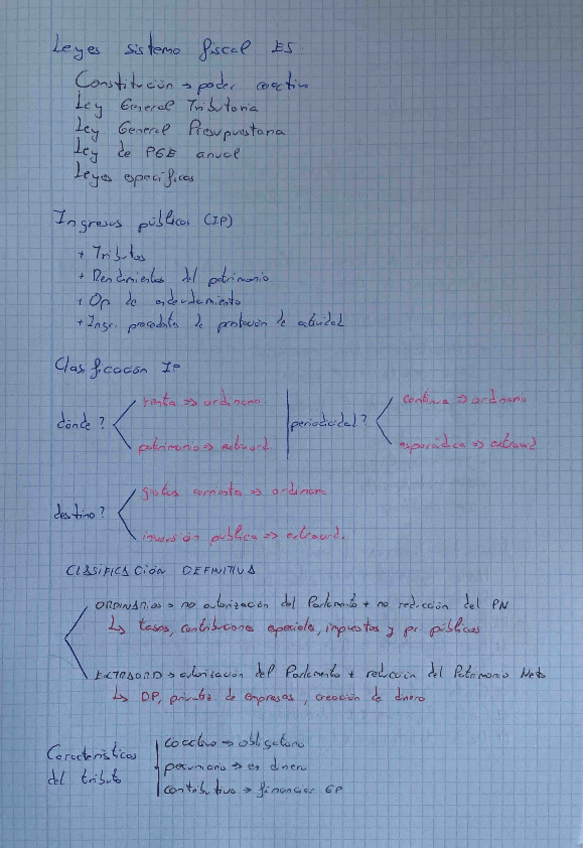 Leyes sistema fiscal ES:
Constitución → poder coactivo
Ley General Tributaria
Ley General Presupuestaria
Ley de PGE anual
Leyes específicas
Ingresos públicos (IP)
+ Tributos
+ Rendimientos del patrimonio
+ Op de endeudamiento
+ Ingr. procedentes de prestación de actividad
Clasificación IP
renta => ordinario
continua => ordinario
dónde?
periodicidad?
patrimonio => extraord.
esporádica => extraord
gastos corrientes => ordinario
destino?
inversión pública => extraord.
CLASIFICACIÓN DEFINITIVA
ORDINARIOS → no autorización del Parlamento + no reducción del PN
↳ tasas, contribuciones especiales, impuestos y pr. públicos
EXTRAORD → autorización del Parlamento + reducción del Patrimonio Neto
↳ DP, privatiz de empresas, creación de dinero
coactivo → obligatorio
Características
pecuniario → en dinero
del tributo
contributivo → financiar GP